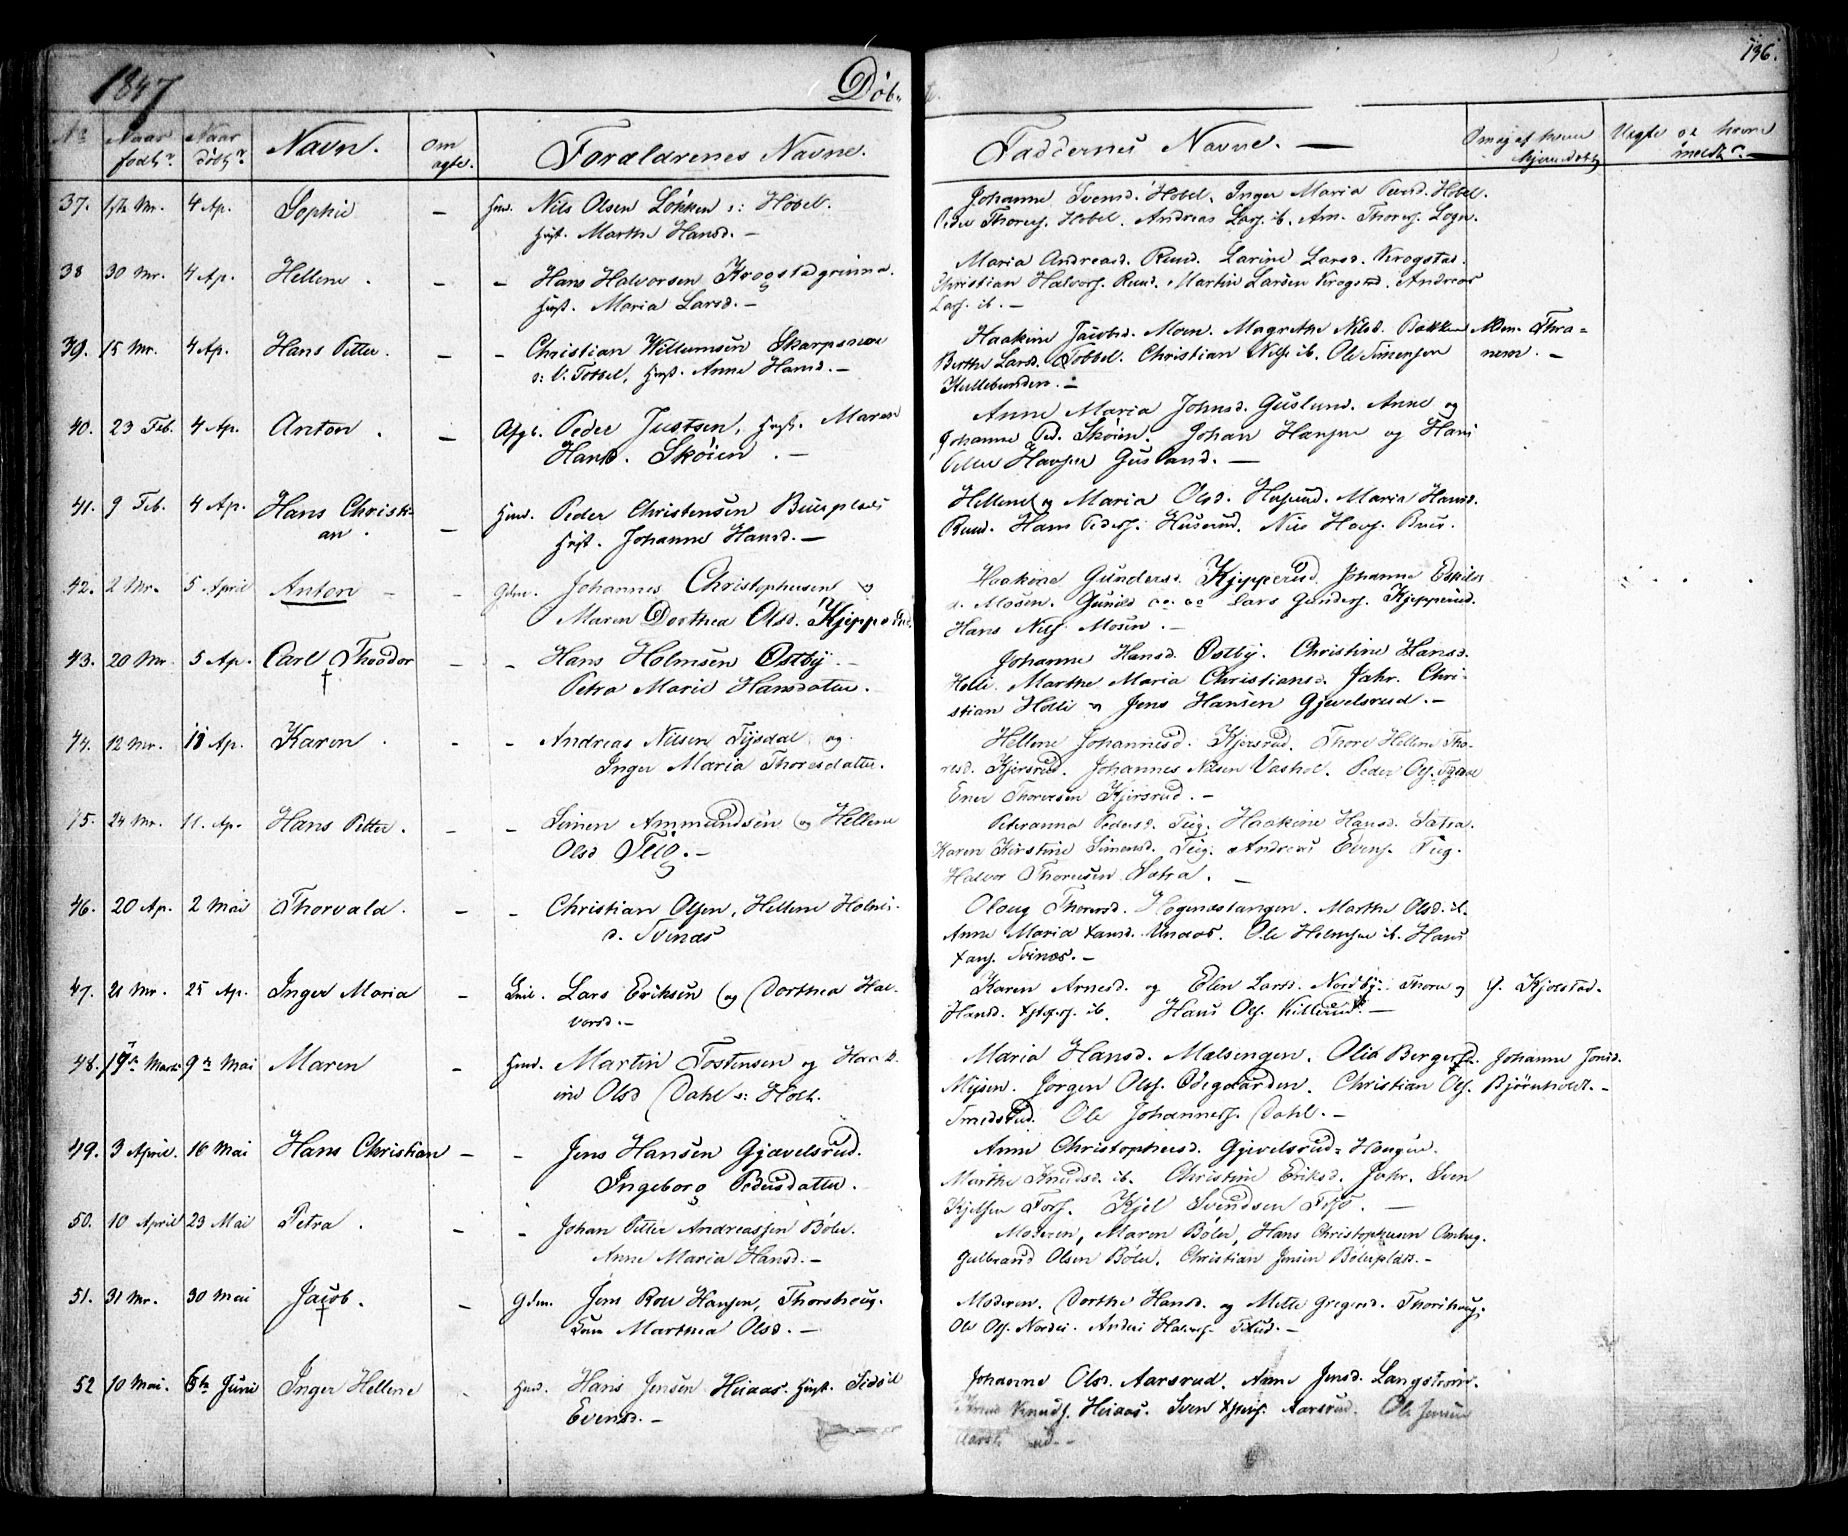 1847
Døb-
te.
136.
No
Naar født?
Naar døbt?
Navn.
Om ægte.
Forældrenes Navne.
Faddernes Navne. —
37. 4 Ap. Sophie — Hmd. Nils Olsen Løkken s: Høbel.
Hust. Marthe Hansd. —
Johanne Svensd. Høbel. Inger Maria Pedersd. Høbel.
Peder Thoresf. Høbel. Andreas Larsf. ib. Arn. Thoresf.
38 30 Mr. 4 Ap. Hellene. — — Hans Halvorsen Krogstadgrinna.
Hust. Maria Larsd. —
Maria Andreasd. Ruud. Larine Larsd. Krogstad.
Christian Halvorsf. Ruud. Martin Larsen Krogstad. Andreas
Larsf. ib. —
39. 15 Mr. 4 Ap. Hans Petter. — — Christian Willumsen Skarpsnoe
s: U: Tobbel, Hust. Anne Hansd. —
Haakine Jacobsd. Moen. Magrethe Nilsd. Bakken
Berthe Larsd. Tobbel. Christian Nilsf. ib. Ole Simensen
Kullebunden. —
Thra=
nem. —
40. 23 Feb. 4 Ap. Anton. — Peder Justsen, Hust. Maren
Hansd. Skøien. —
Anne Maria Johnsd. Guslund. Anne og
Johanne Ped. Skøien. Johan Hansen og Hans
Petter Hansen Guslund. —
41. 9 Feb. 4 Ap. Hans Christi-
an. — Hmd. Peder Christensen Buerplads
Hust. Johanne Hansd. —
Hellene og Maria Olsd. Maria Hansd.
Ruud. Hans Pedersf. Huserud. Nils Hansf. Buer.
42. 2 Mr. 5 April Anton — Gdm. Johannes Christophersen og
Maren Dorthea Olsd. Kjepperud.
Haakine Gundersd. Kjepperud. Johanne Eskils
d. Mosen. Gunild Lars Gundersf. Kjepperud.
Hans Nilsf. Mosen. —
43. 20 Mr. 5 Ap. Carl Theodor † — — Hans Holmsen Østby. —
Petra Marie Hansdatter.
Johanne Hansd. Østby. Christine Hansd.
Holli. Marthe Maria Christiansd. Jahr. Chri-
stian Holli og Jens Hansen Gjevelsrud. —
44. 12 Mr. 11 Ap. Karen. — — Andreas Nilsen Tysdal og
Inger Maria Thoresdatter.
Hellene Johannesd. Kjersrud. Thore Hellene Tho-
resd. Kjersrud. Johannes Nilsen Vashol. Peder Olsf.
Ener Thoresen Kjersrud. —
45. 24 Mr. 11. Ap. Hans Petter. — — Simen Ammundsen og Hellene
Olsd Teig. —
Peteranna Pedersd. Teig. Haakine Hansd. Sætra.
Karen Kirstine Simensd. Teig. Andreas Evensf. Teig.
Halvor Thoresen Sætra. —
46. 20 Ap. 2 Mai Thorvald. — — Christian Olsen, Hellene Holms-
d. Svinæs
Oloug Thoresd. Høgenæstangen. Marthe Olsd. ib.
Anne Maria Hansd. Unaas. Ole Holmsen ib. Hans
Hansf. Svinæs. —
47. 21 Mr. 25 Ap. Inger Maria — Lars Eriksen og Dorthea Hal-
vorsd. —
Karen Arnesd. og Elen Larsd. Nordby. Thora og
Hansd. ib. Hans Olsf. Killerud. —
G. Kjolstad.
48. 19de Marts 9de Mai Maren — Hmd. Martin Tostensen og Haak-
ine Olsd Dahl s: Holt.
Maria Hansd. Malsingen. Olia Bergersd.
Mysen. Jørgen Olsf. Ødegaarden. Christian Olsf.
Smedsrud. Ole Johannesf. Dahl. —
Johanne Jensd.
Bjørnholdt. —
49. 3 April. 16 Mai Hans Christian — — Jens Hansen Gjævelsrud.
Ingeborg Pedersdatter.
Anne Christophersd. Gjevelsrud-Haugen.
Marthe Knudsd. ib. Christine Eriksd. Jahr. Sven
Kjelsen Fosf. Kjel Svendsen Foss. —
50. 10 April 23 Mai Petra. — — Johan Petter Andreassen Bøler.
Anne Maria Hansd. —
Moderen, Maren Bøler, Hans Christophersen
Gulbrand Olsen Bøler. Christian Jensen Bølerplads. —
51. 31 Mr. 30 Mai Jacob. † — Gdm. Jens Roer Hansen, Thorshoug.
Marthea Olsd. —
Moderen. Dorthe Hansd. og Mette Gregersd. Thorshoug.
Ole Olsf. Nordre. —
52 10 Mai. 6te Juni Inger Hellene . Hmd. Hans Jensen Heiaas. Hust. Sidsel
Evensd. —
Johanne Olsd. Aarsrud. Anne Jensd. Langstrøm.
Knudsf. Heiaas. Sven Aarsrud. Ole Jensen